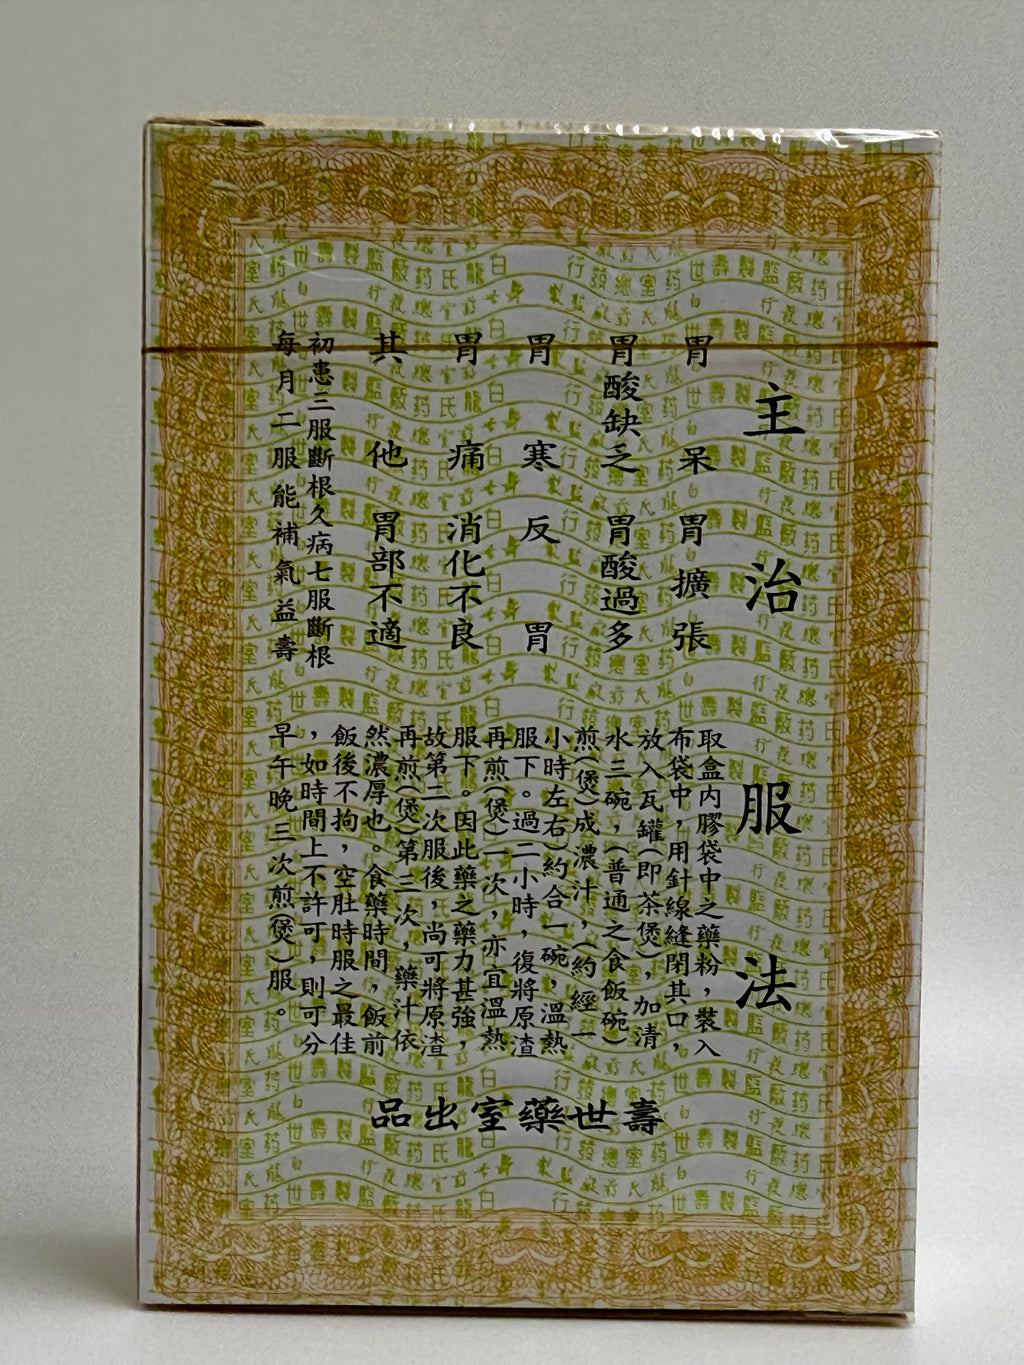 主治服法
胃呆 胃擴張
胃酸缺乏 胃酸過多
胃寒 反胃
胃痛 消化不良
其他 胃部不適
初患三服斷根久病七服斷根
每月二服能補氣益壽
取盒內膠袋中之藥粉，裝入
布袋中，用針線縫閉其口，
放入瓦罐(即茶煲)，加清
水三碗，(普通之食飯碗)
煎(煲)成濃汁，(約經一
小時左右)約合一碗，溫熱
服下。過二小時，復將原渣
再煎(煲)一次，亦宜溫熱
服下。因此藥之藥力甚強，
故第二次服後，尚可將原渣
再煎(煲)第三次，藥汁依
然濃厚也。食藥時間，飯前
飯後不拘，空肚時服之最佳
，如時間上不許可，則可分
早午晚三次煎(煲)服。
壽世藥室出品